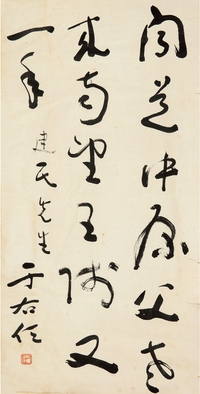 聞道中原父老
南望王師又
一年
建民先生 于右任